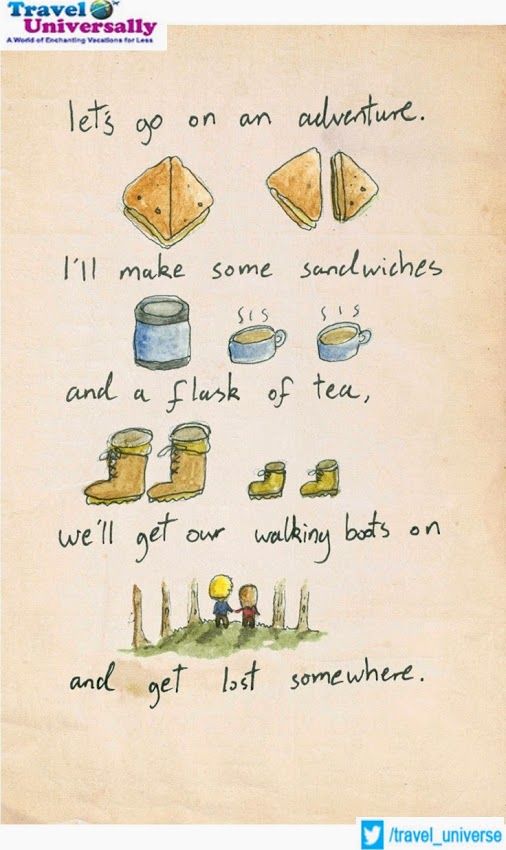 Travel
Universally
A World of Enchanting Vacations for Less
let's go on an adventure.
I'll make some sandwiches
and a flask of tea,
we'll get our walking boots on
and get lost somewhere.
/travel_universe